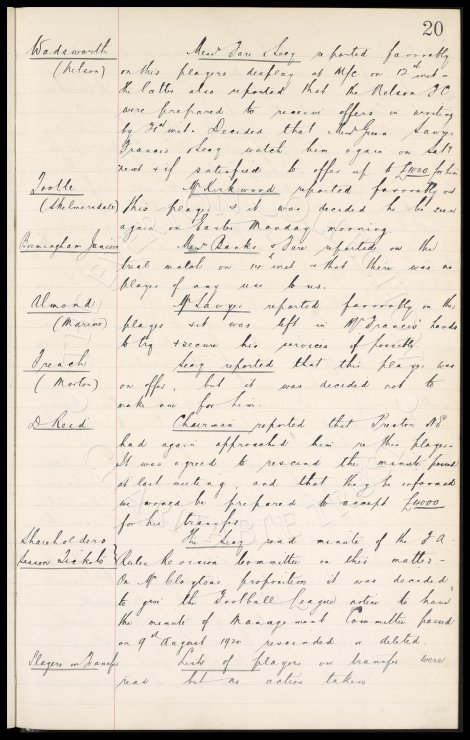 20
Wadsworth Messrs Fare & Secy reported favorably
(Nelson) on this players display at M/c on 12th inst -
the latter also reported that the Nelson FC
were prepared to receive offers in writing
by inst. Decided that Messrs Green Sawyer
Francis & Secy watch him again on Saty
next & if satisfied to offer up to £1000 for him
Tootle Mr Kirkwood reported favorably on
(Skelmersdale) this player & it was decided he be seen
again on Easter Monday morning
Birmingham Juniors Messrs Banks & Fare reported on the
trial match on 14th inst & that there was no
player of any use to us.
Almond Mr Sawyer reported favorably on this
(Marine) player & it was left in Mr Francis' hands
to try & secure his services if possible
French Secy reported that this player was
(Morton) on offer, but it was decided not to
make one for him.
D Reid Chairman reported that Preston N.E.
had again approached him re this player -
It was agreed to rescind the minute passed
at last meeting, and that they be informed
we would be prepared to accept
for his transfer
Shareholders The Secy read minute of the F.A.
Season Tickets Rules Revision Committee on this matter. -
On Mr Claytons proposition it was decided
to give the Football League notice to have
the minute of Management Committee passed
on 9th August 1920 rescinded or deleted.
Players on Transfer Lists of players on transfer were
read but no action taken